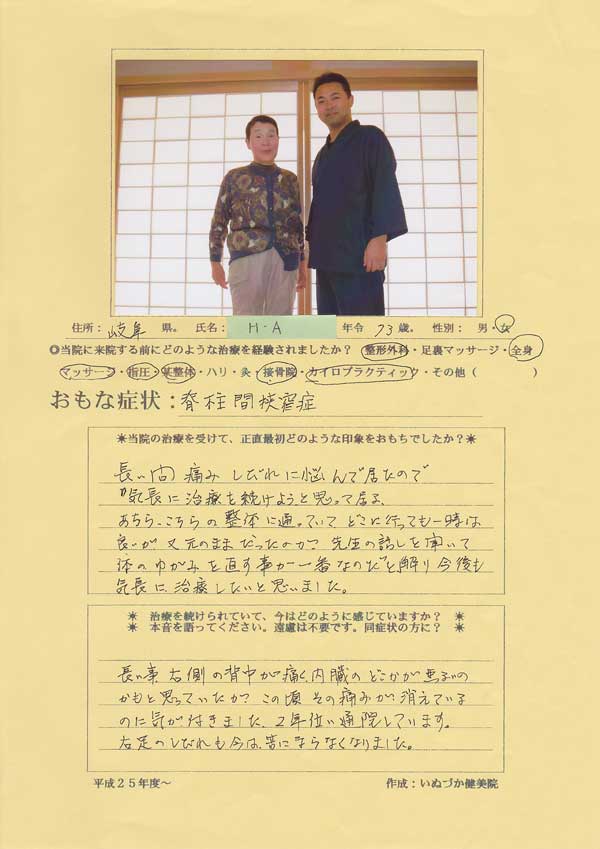 住所： 岐阜 県。 氏名： H・A 年令 73 歳。 性別： 男・女
◎当院に来院する前にどのような治療を経験されましたか？ 整形外科・足裏マッサージ・全身
マッサージ・指圧・某整体・ハリ・灸・接骨院・カイロプラクティック・その他（ ）
おもな症状：脊柱間挟窄症
✷当院の治療を受けて、正直最初どのような印象をおもちでしたか？✷
長い間 痛み しびれに悩んで居たので
気長に治療を続けようと思って居る、
あちら、こちらの整体に通っていて どこに行っても一時は
良いが 又元のままだったのが 先生の話しを聞いて
体のゆがみを直す事が一番なのだと解り今後も
気長に治療したいと思いました。
✷ 治療を続けられていて、今はどのように感じていますか？ ✷
✷ 本音を語ってください。遠慮は不要です。同症状の方に？ ✷
長い事 右側の背中が痛く、内臓のどこかが悪いの
かもと思っていたが この頃 その痛みが消えている
のに気が付きました、2年位い通院しています。
右足のしびれも今は、苦にならなくなりました。
平成２５年度～ 作成：いぬづか健美院